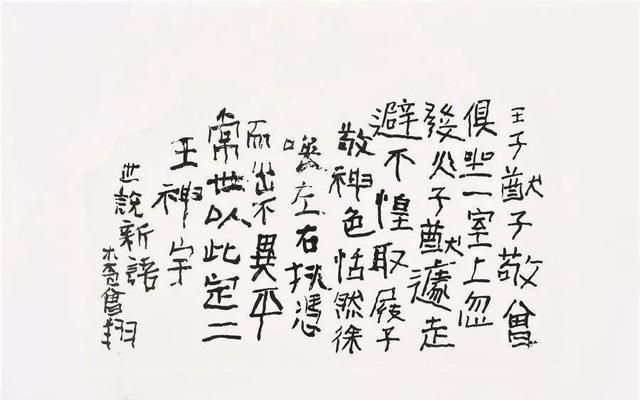 王子猷子敬曾
俱坐一室上忽
發火子猷遽走
避不惶取屐子
敬神色恬然徐
喚左右扶憑
而出不異平
常世以此定二
王神宇
世說新語
曾翔